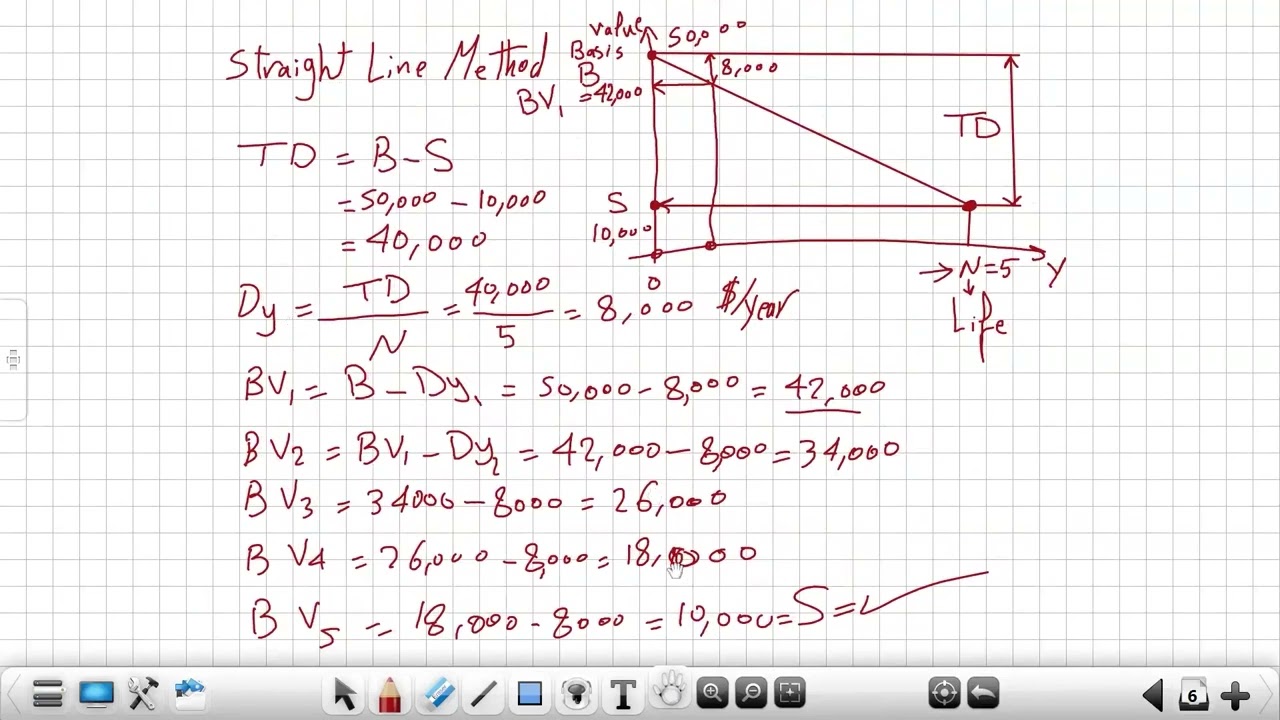 Straight Line Method
value
Basis
B
50,000
8,000
BV1 = 42,000
TD
S
10,000
0
→ N=5
Y
Life
TD = B-S
= 50,000 - 10,000
= 40,000
Dy = TD/N = 40,000/5 = 8,000 $/year
BV1 = B - Dy1 = 50,000 - 8,000 = 42,000
BV2 = BV1 - Dy2 = 42,000 - 8,000 = 34,000
BV3 = 34000 - 8000 = 26,000
BV4 = 26,000 - 8,000 = 18,000
BV5 = 18,000 - 8000 = 10,000 = S = ✓
T
6